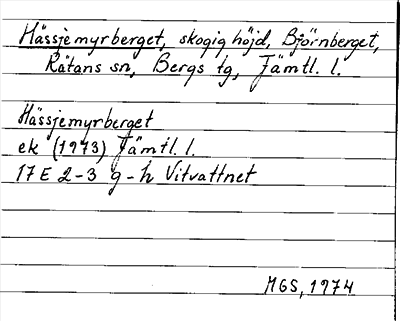 Hässjemyrberget, skogig höjd, Björnberget,
Rätans sn, Bergs tg, Jämtl. l.
Hässjemyrberget
ek (1973) Jämtl. l.
17E 2-3 g-h Vitvattnet
MGS, 1974